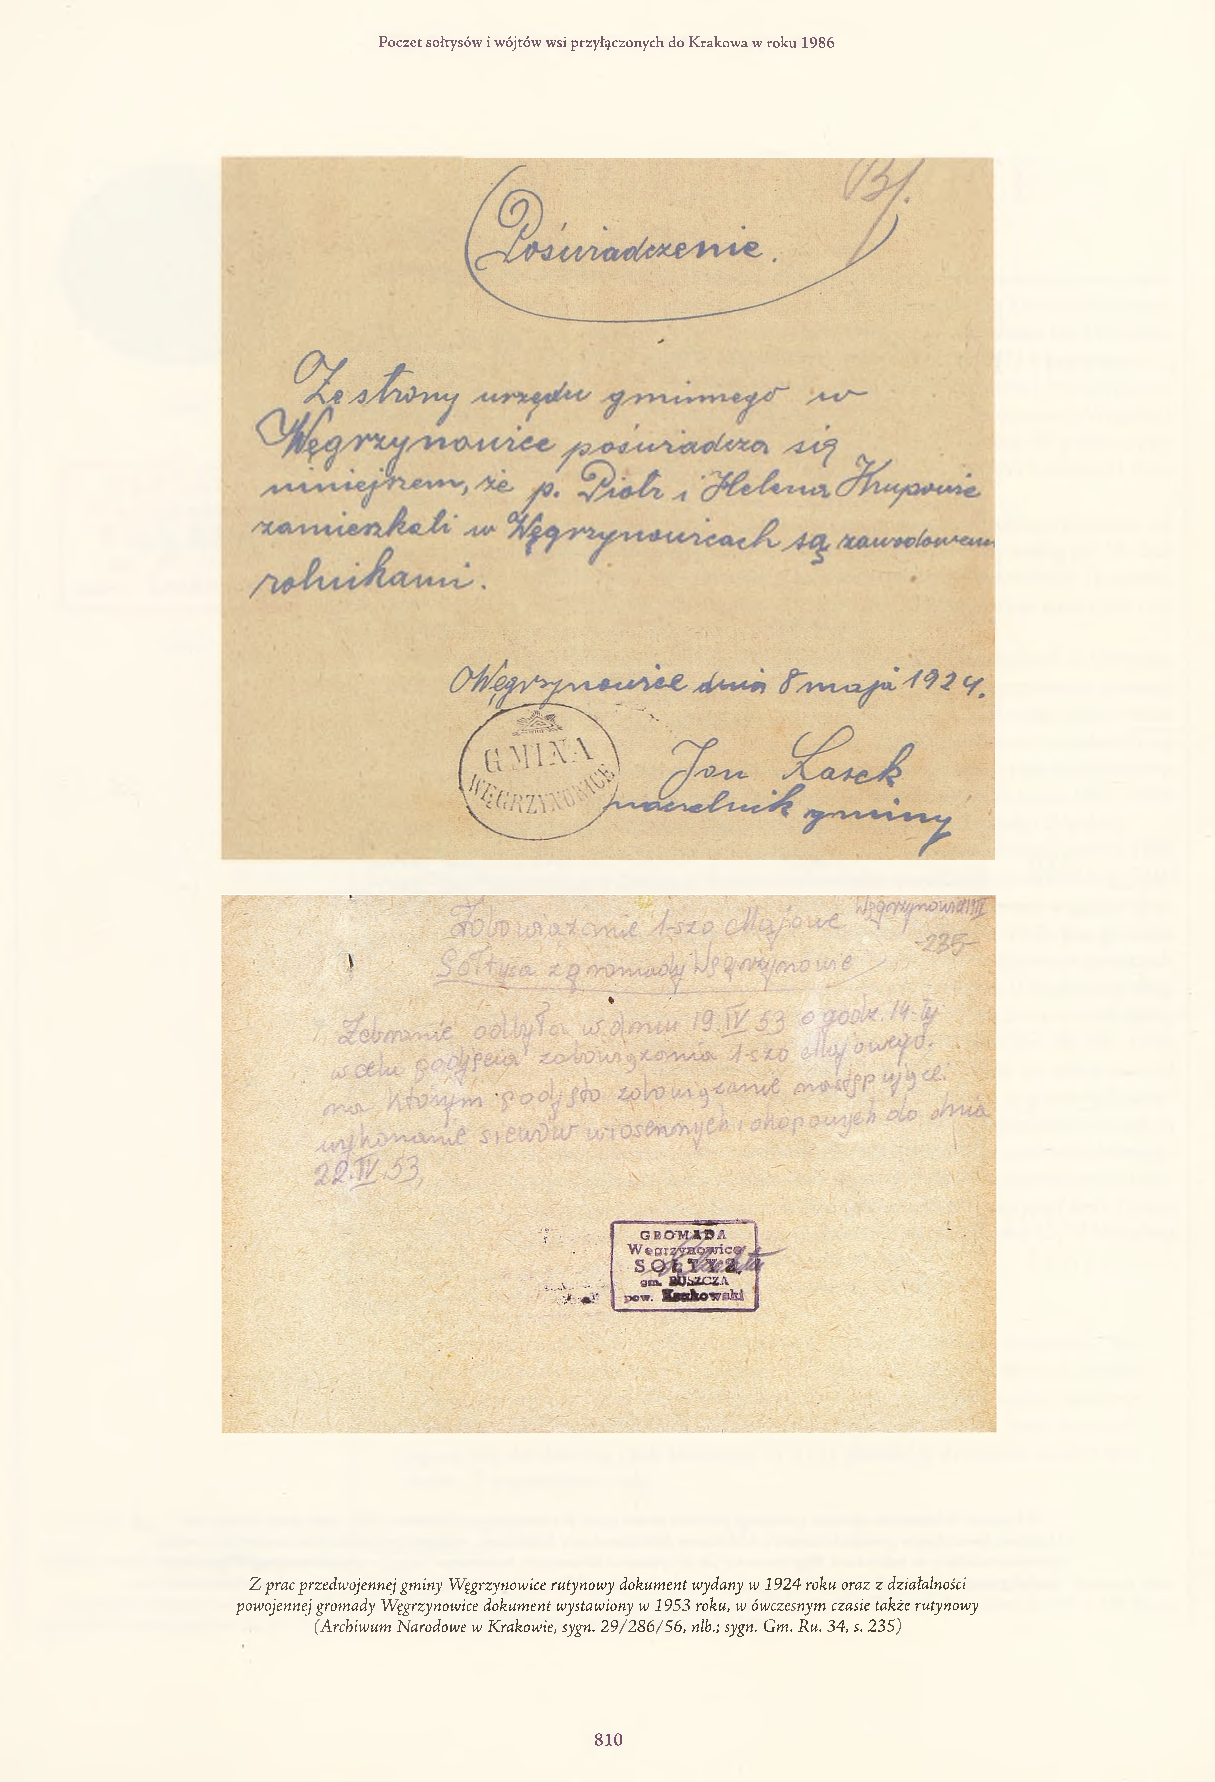 Poczet sołtysów i wójtów wsi przyłączonych do Krakowa w roku 1986
Bf.
Poświadczenie.
Ze strony urzędu gminnego w
Węgrzynowice poświadcza się
niniejszem, że p. Piotr i Helena Krupowie
zamieszkali w Węgrzynowicach są zawodowemi
rolnikami.
Węgrzynowice dnia 8 maja 1924.
GMINA
WĘGRZYNOWICE
Jan Łasek
naczelnik gminy
Węgrzynowice
Zobowiązanie 1-szo Majowe
-235-
Sołtysa z gromady Węgrzynowice
Zebranie odbyła w dniu 19.IV 53 o godz. 14-tej
w celu podjęcia zobowiązania 1-szo Majowego.
na którym podjęto zobowiązanie następujące:
wykonanie siewów wiosennych i okopowych do dnia
22.IV.53,
GROMADA
Węgrzynowice
SOŁTYS
gm. RUSZCZA
pow. Krakowski
Z prac przedwojennej gminy Węgrzynowice rutynowy dokument wydany w 1924 roku oraz z działalności
powojennej gromady Węgrzynowice dokument wystawiony w 1953 roku, w ówczesnym czasie także rutynowy
(Archiwum Narodowe w Krakowie, sygn. 29/286/56, nlb.; sygn. Gm. Ru. 34, s. 235)
810